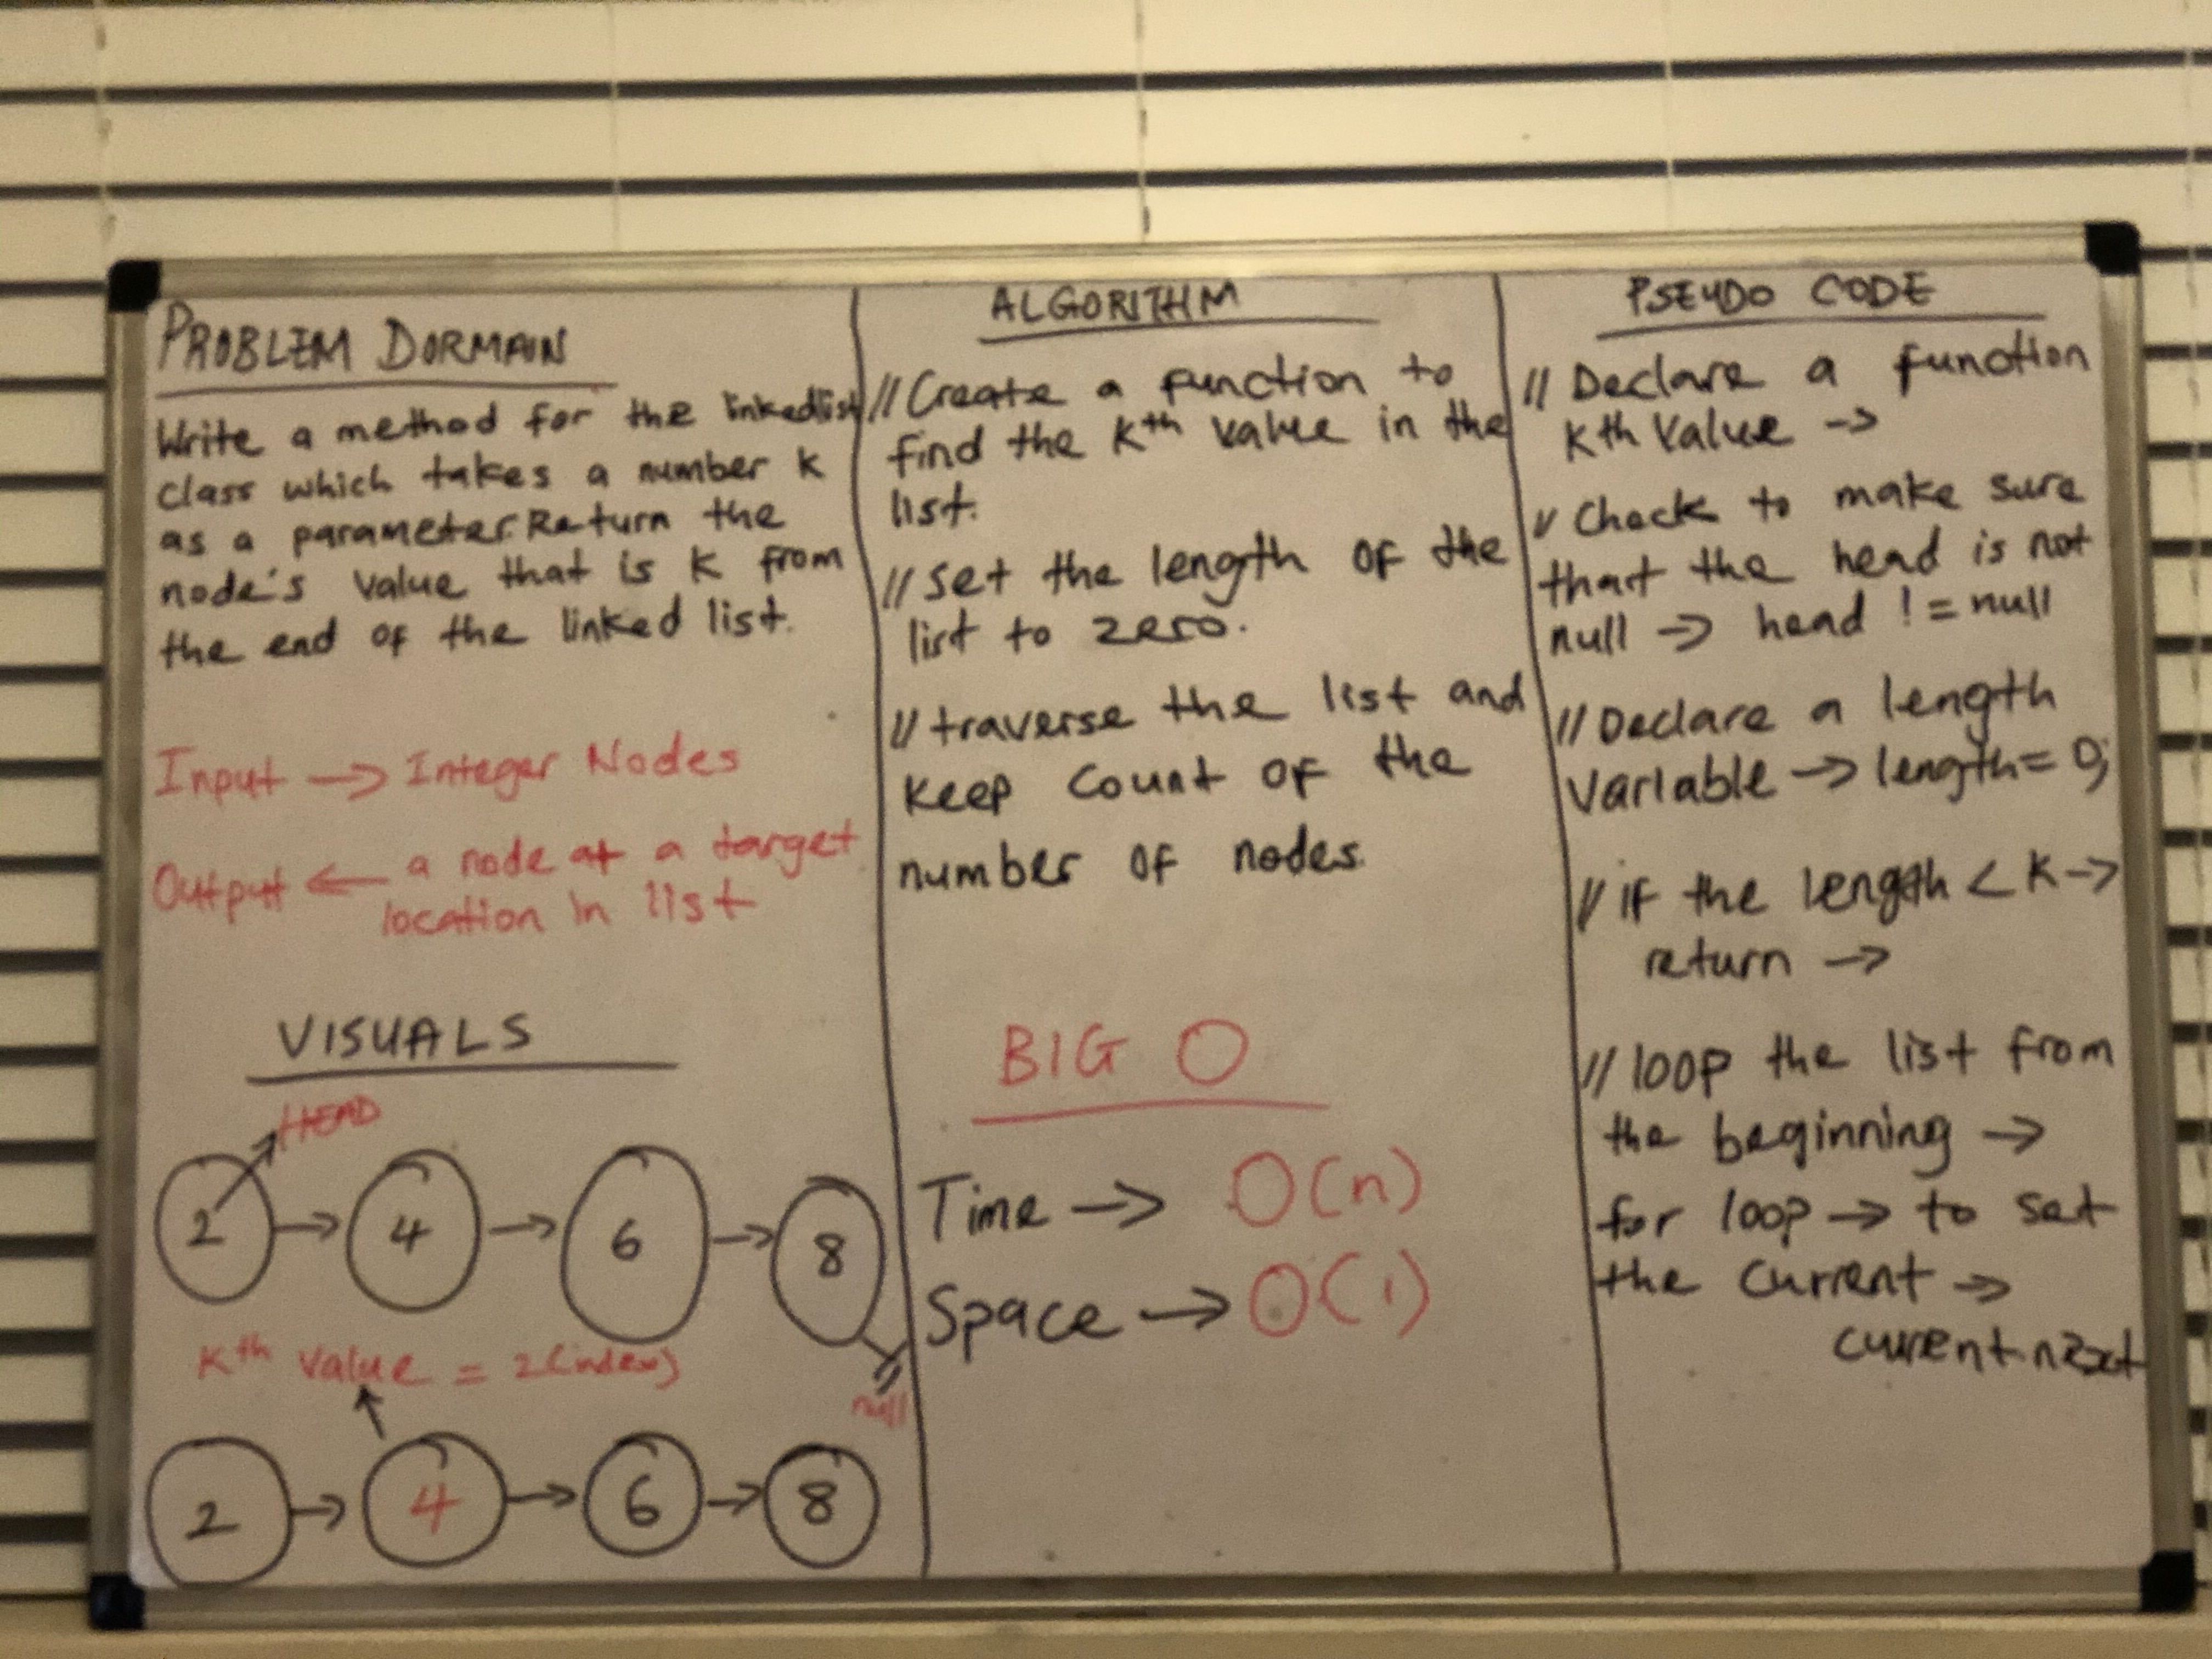 PROBLEM DORMAIN
Write a method for the linkedlist
class which takes a number k
as a parameter. Return the
node's value that is k from
the end of the linked list.
Input → Integer Nodes
Output ← a node at a target
location in list
VISUALS
HEAD
2 → 4 → 6 → 8
null
Kth value = 2(index)
2 → 4 → 6 → 8
ALGORITHM
// Create a function to
find the Kth value in the
list.
// set the length of the
list to zero.
// traverse the list and
keep count of the
number of nodes.
BIG O
Time → O(n)
Space → O(1)
PSEUDO CODE
// Declare a function
Kth Value →
// Check to make sure
that the head is not
null → head != null
// Declare a length
variable → length = 0;
// if the length < K →
return →
// loop the list from
the beginning →
for loop → to set
the current →
current.next